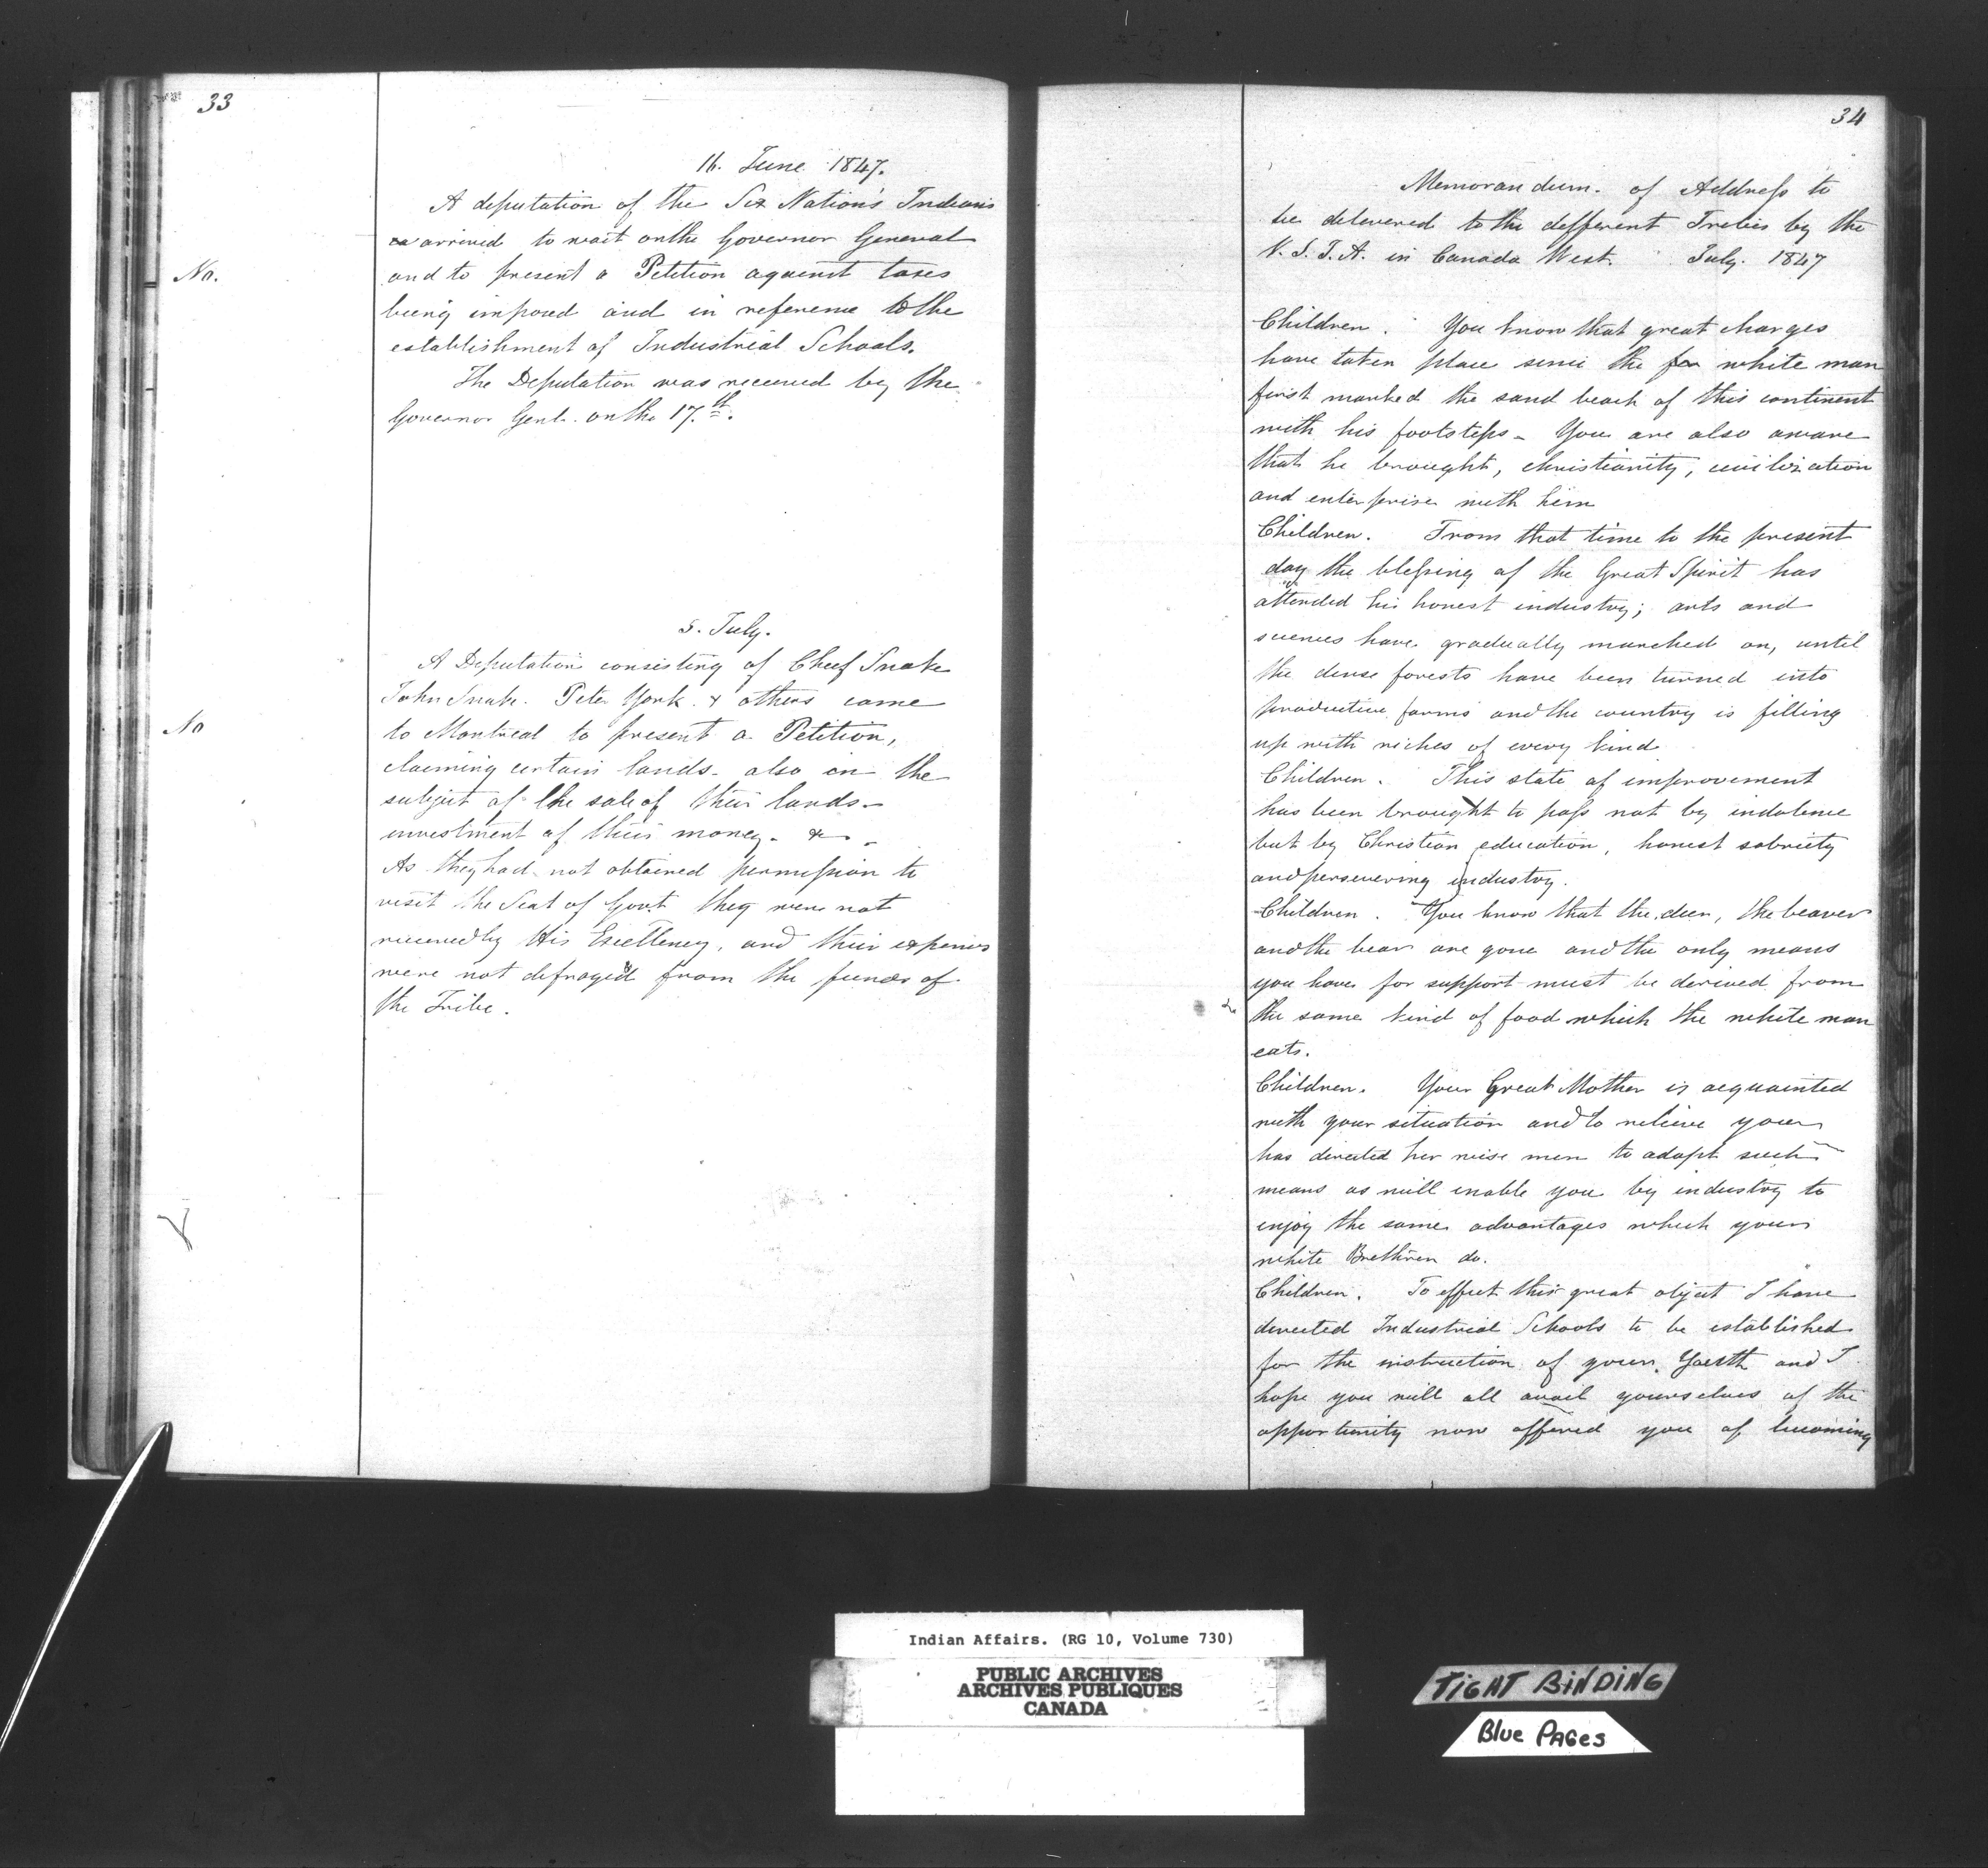 33
16. June 1847.
A deputation of the Six Nation's Indians
arrived to wait on the Governor General
and to present a Petition against taxes
No.
being imposed and in reference to the
establishment of Industrial Schools.
The Deputation was received by the
Governor Genl. on the 17.th.
5. July.
A Deputation consisting of Chief Snake
John Snake. Peter York. & others came
No
to Montreal to present a Petition,
claiming certain lands - also on the
subject of the sale of their lands -
investment of their money - &c -
As they had not obtained permission to
visit the Seat of Govt. they were not
received by His Excellency, and their expenses
were not defrayed from the funds of
the Tribe.
34
Memorandum. of Address to
be delivered to the different Tribes by the
V. S. I. A. in Canada West. July. 1847
Children. You know that great changes
have taken place since the white man
first marked the sand beach of this continent
with his footsteps - You are also aware
that he brought, christianity, civilization
and enterprise with him
Children. From that time to the present
day the blessing of the Great Spirit has
attended his honest industry; arts and
sciences have gradually marched on, until
the dense forests have been turned into
productive farms and the country is filling
up with riches of every kind
Children. This state of improvement
has been brought to pass not by indolence
but by Christian education, honest sobriety
and persevering industry.
Children. You know that the deer, the beaver
and the bear are gone and the only means
you have for support must be derived from
the same kind of food which the white man
eats.
Children. Your Great Mother is acquainted
with your situation and to relieve you
has directed her wise men to adopt such
means as will enable you by industry to
enjoy the same advantages which your
white Brethren do.
Children. To effect this great object I have
directed Industrial Schools to be established
for the instruction of your Youth and I
hope you will all avail yourselves of the
opportunity now offered you of becoming
Indian Affairs. (RG 10, Volume 730)
PUBLIC ARCHIVES
ARCHIVES PUBLIQUES
CANADA
TIGHT BINDING
Blue PAGes